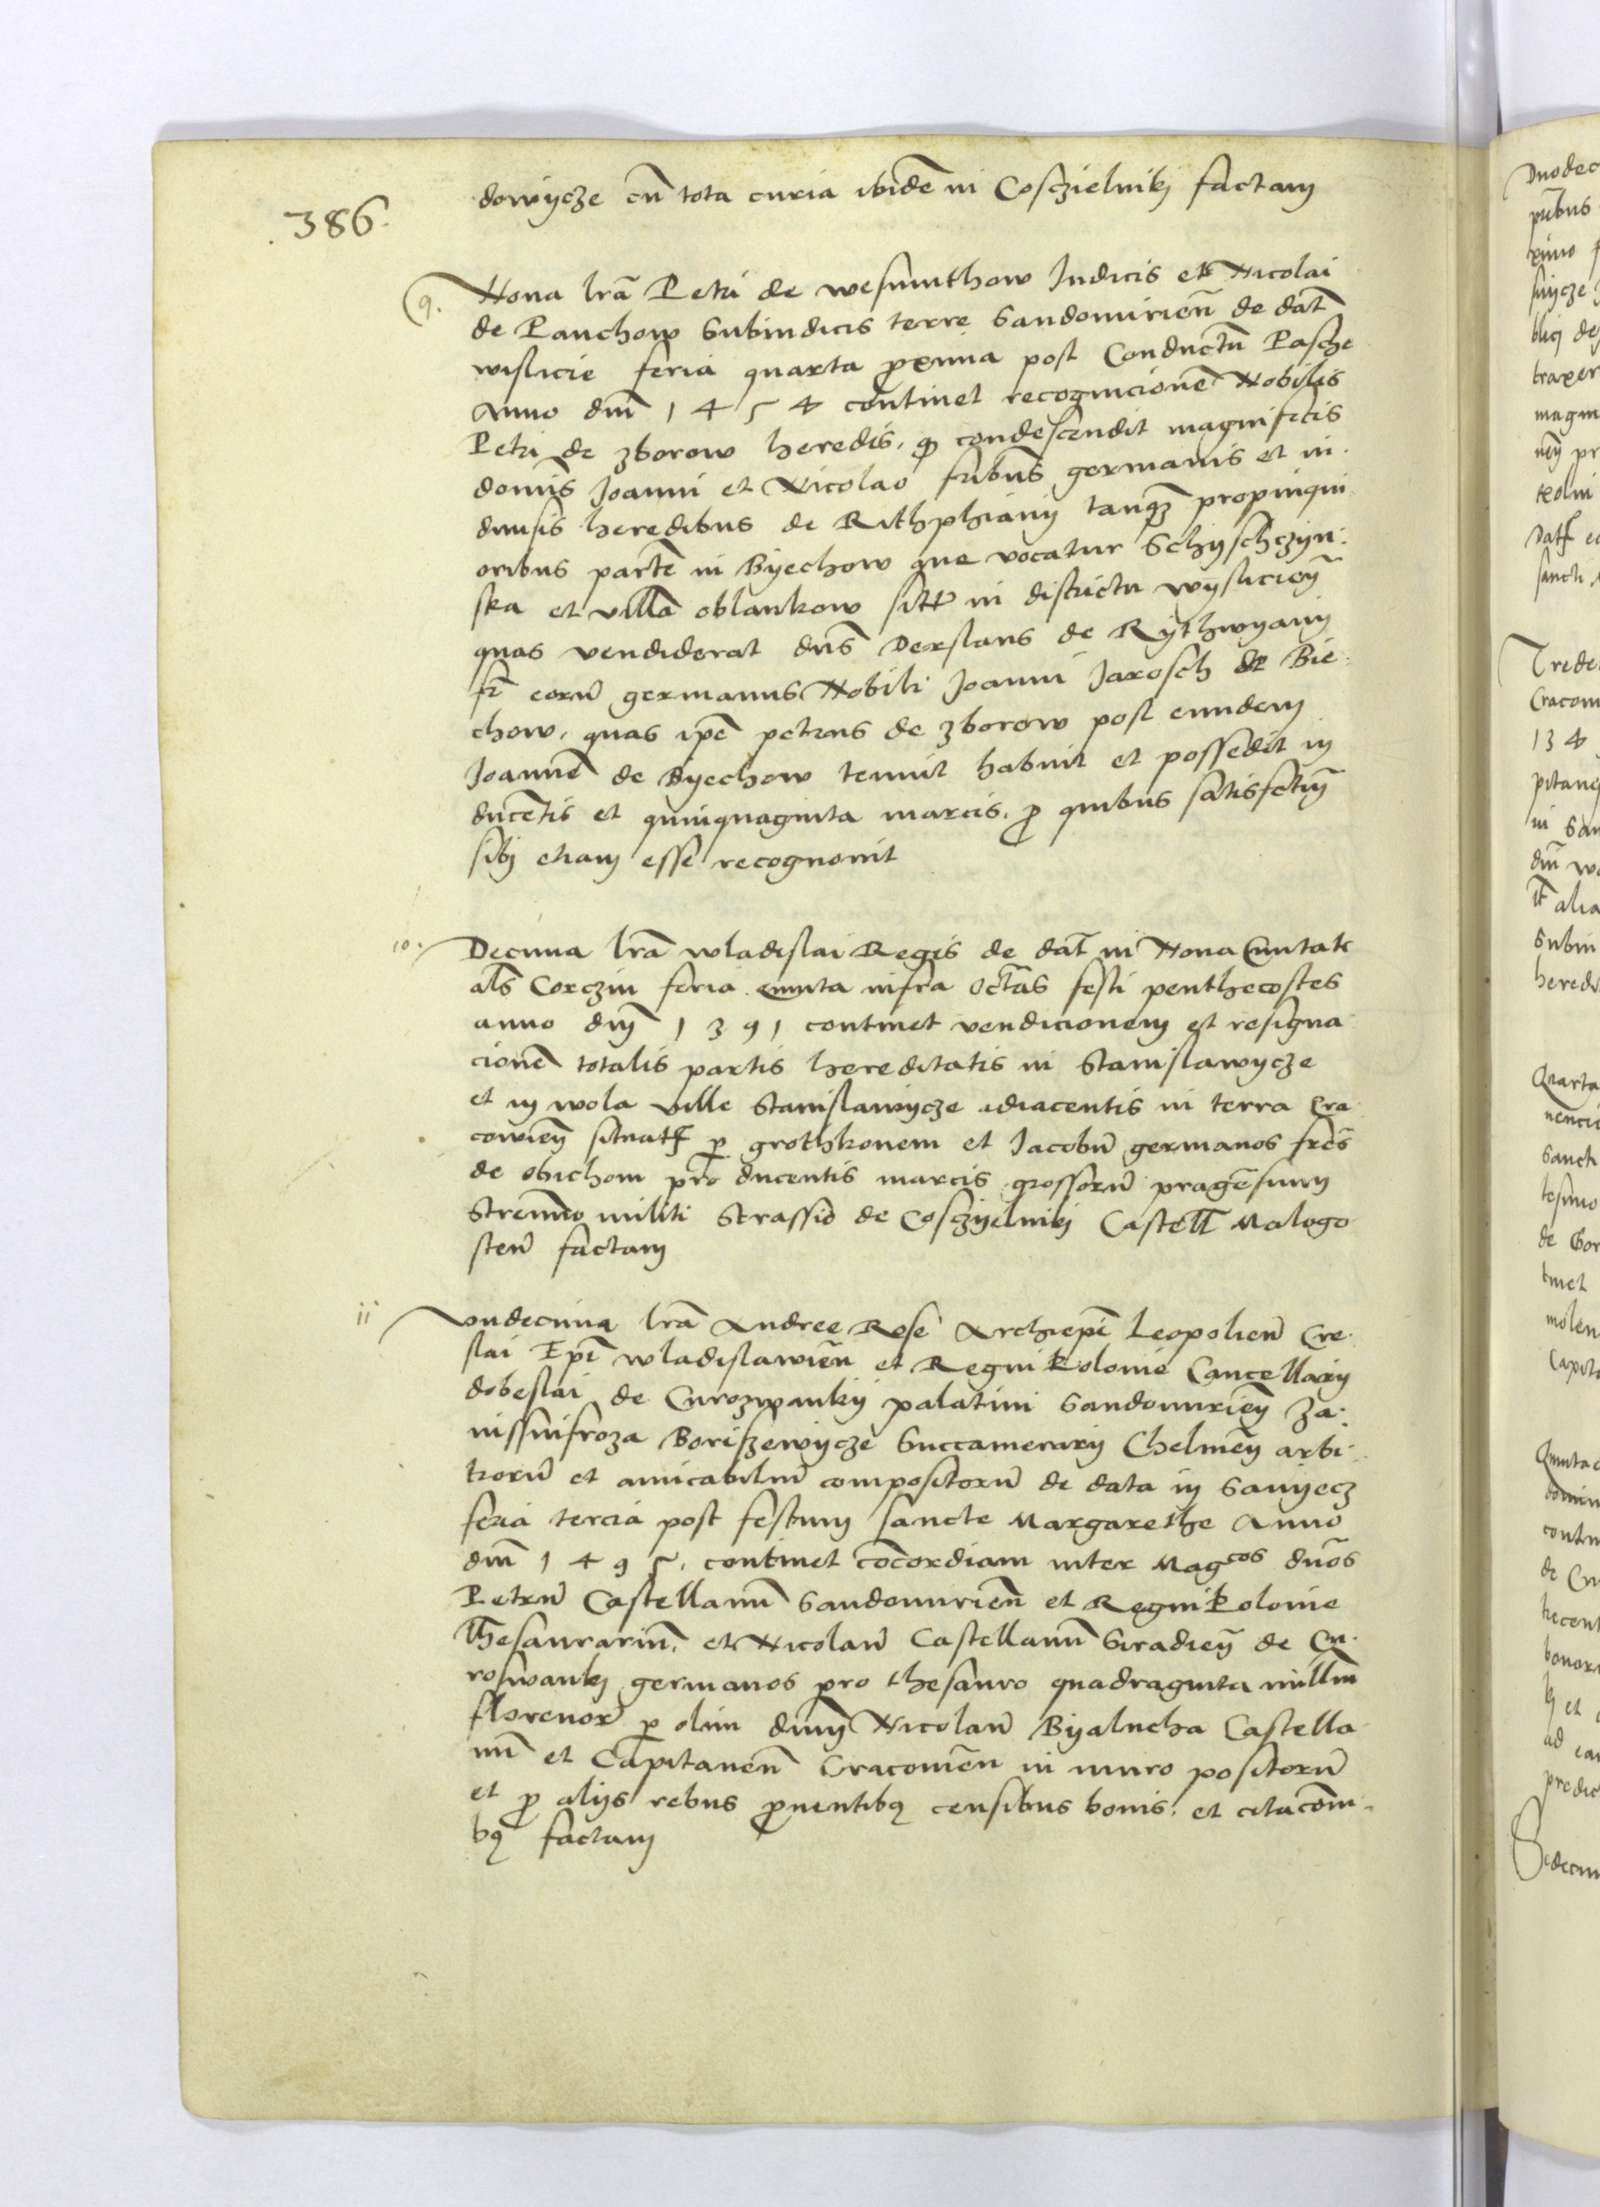 386.
dowycze cũ tota curia ibidẽ in Cosczielnikj factam
9. Nona lrã Petri de wesmuthow Judicis et Nicolai
de Panchow Subiudicis terre Sandomirieñ de dat
wislicie feria quarta proxima post Conductũ Pasche
Anno dñi 1454 continet recognicionẽ Nobilis
Petri de zborow heredis, q condescendit magnificis
dominis Joanni et Nicolao fribus germanis et in
diuisis heredibus de Rithphiany tanqz propinqui
oribus partẽ in Byechow que vocatur Schyschczyn
ska et villã oblankow sitt in districtu wysliciẽn
quas vendiderat dñs Derslaus de Rythwyany
fr eorũ germanus Nobili Joanni Jarosch de Bie
chow, quas ipse petrus de zborow post eundem
Joannẽ de Byechow tenuit habuit et possedit in
ducẽtis et quinquaginta marcis, p quibus satisfctm
sibj etiam esse recognouit
10. Decima lrã wladislai Regis de dat in Noua Ciuitate
als Corczin feria quinta infra octãs festi penthecostes
anno dñi 1391 continet vendicionem et resigna
cionẽ totalis partis hereditatis in Stanislawycze
et in wola ville Stanislawycze adiacentis in terra Cra
couieñ situat p grothkonem et Jacobũ germanos fres
de obichow pro ducentis marcis grossorũ pragẽsium
Strennuo militi Strassio de Cosczyelnikj Castell Malogo
steñ factam
11 Vndecima lrã Andree Rose Archiepi Leopolieñ Cre
slai Epi wladislawieñ et Regni Polonie Cancellarij
dobeslai de Curozwankij palatini Sandomirieñ Za
nissij froza Boriszewycze Succamerarij Chelmeñ arbi
trorũ et amicabiliũ compositorũ de data in Sanyecz
feria tercia post festum sancte Margarethe Anno
dñi 1495, continet cõcordiam inter Magcos dños
Petrũ Castellanũ Sandomirieñ et Regni Polonie
Thesaurariũ, et Nicolaũ Castellanũ Siradieñ de Cu
roswankj germanos pro thesauro quadraginta milliũ
florenor p olim dñm Nicolaũ Byalucha Castella
nũ et Capitaneũ Cracouieñ in muro positorũ
et p alijs rebus puentibq censibus bonis, et citacõni
bq factam